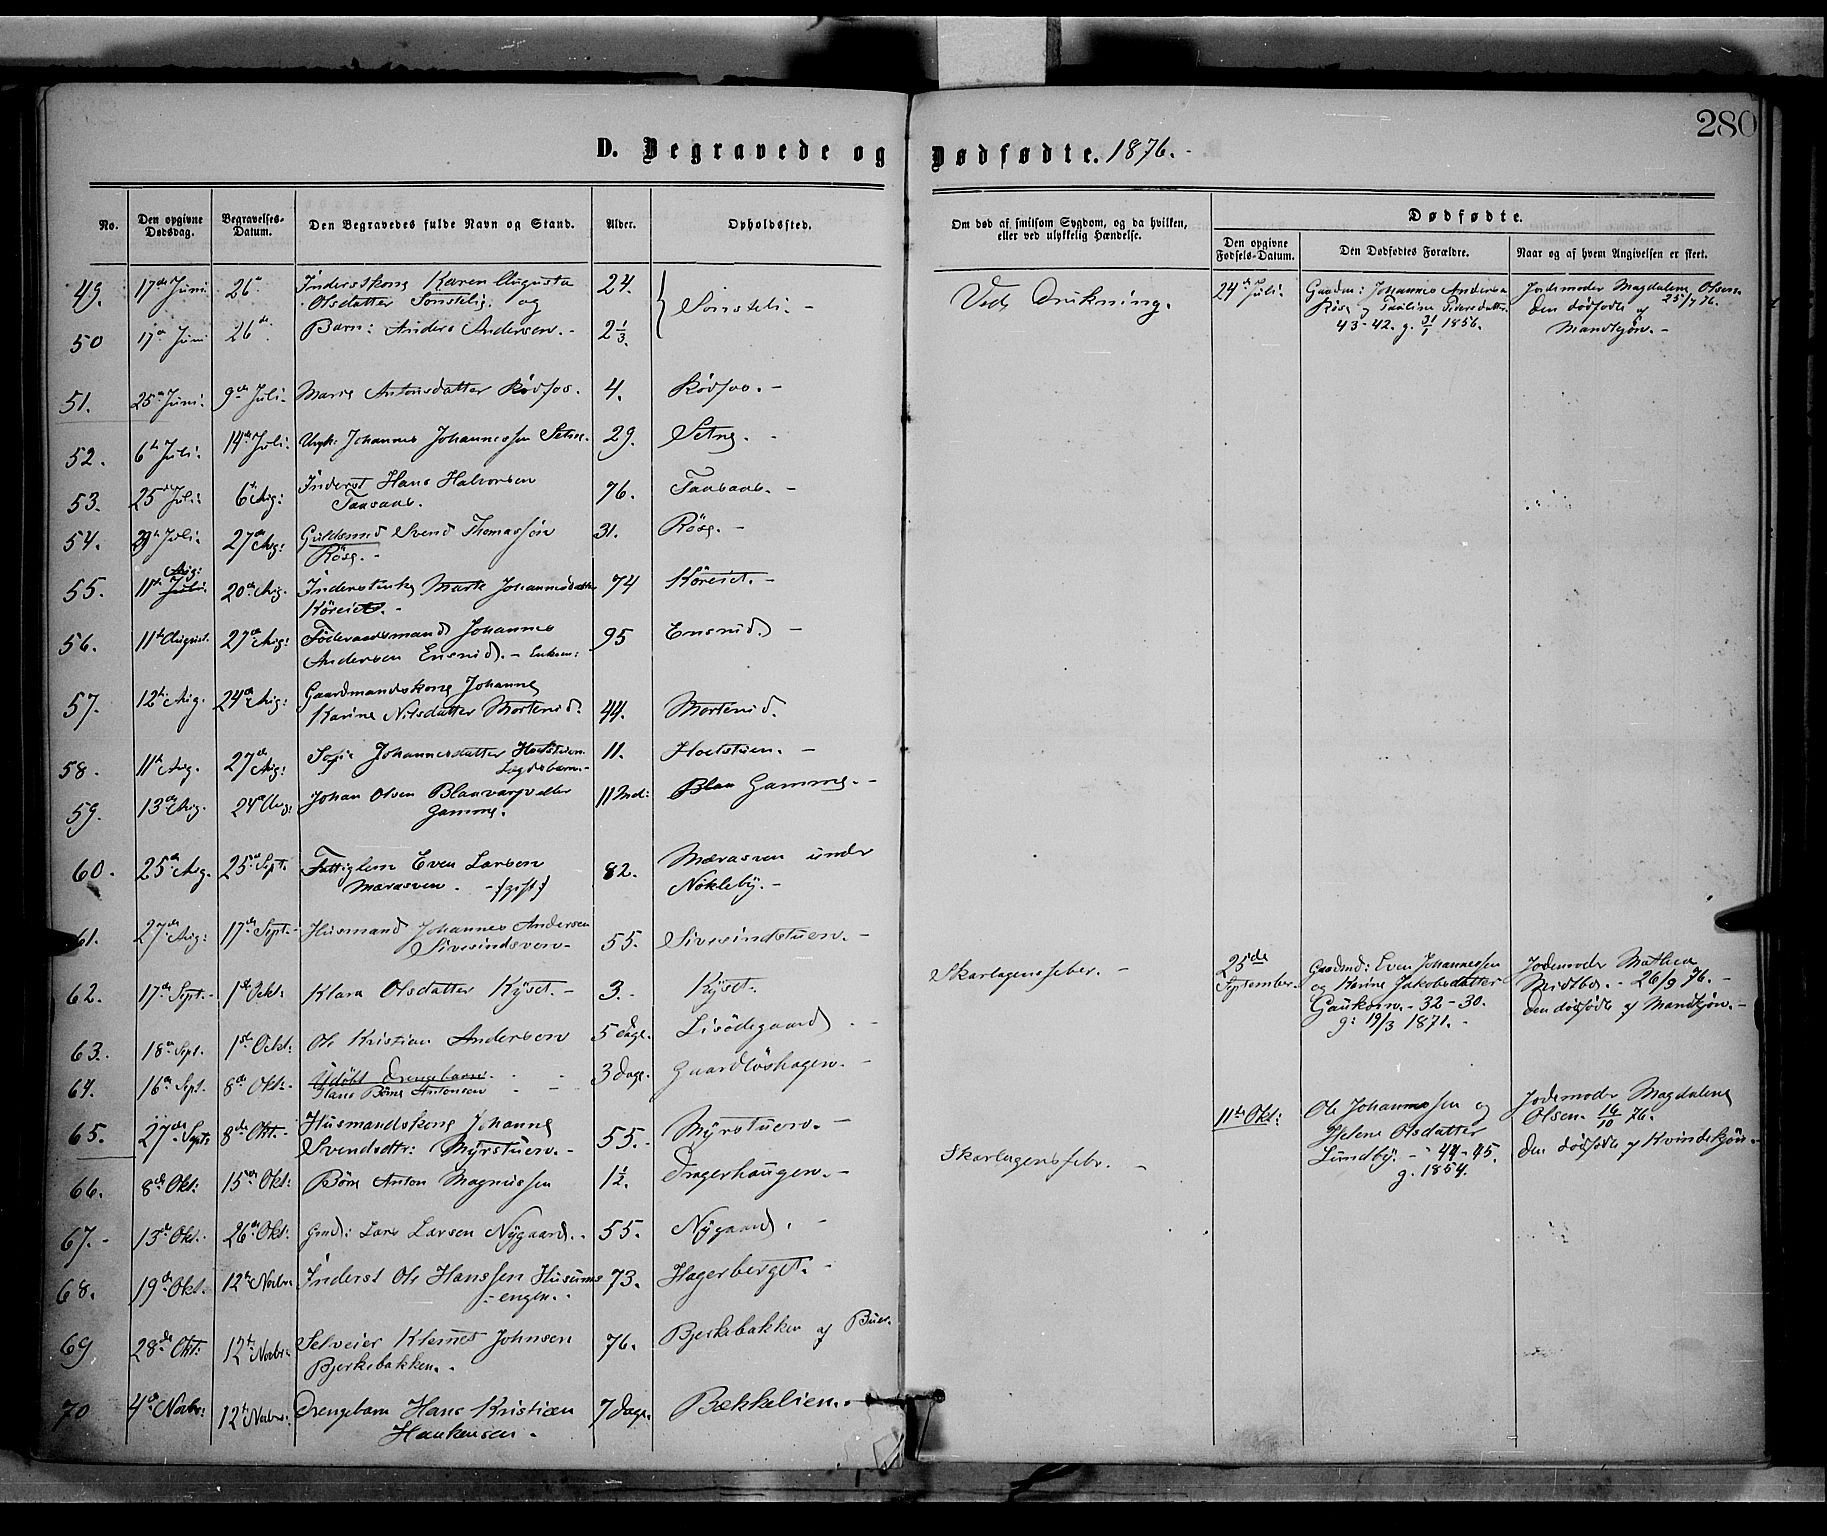 280
D. Begravede og Dødfødte. 1876.
No.
Den opgivne Dødsdag.
Begravelses-Datum.
Den Begravedes fulde Navn og Stand.
Alder.
Opholdssted.
Om død af smitsom Sygdom, og da hvilken, eller ved ulykkelig Hændelse.
Dødfødte.
Den opgivne Fødsels-Datum.
Den Dødfødtes Forældre.
Naar og af hvem Angivelsen er skeet.
49. 17de Juni 26de Inderstkone Karen Augusta 24.
Olsdatter Sønsteli og Sønsteli. - Ved Drukning.
50 17de Juni 26de Barn: Anders Andersen. - 2 1/3.
24de Juli. Gaardm: Johannes Andersen
Røse og Pauline Pedersdatter
43-42. g. 31/1 1856.
Jordemoder Magdalene Olsen 25/7 76.
Den dødfødte af
Mandkjøn. -
51. 25de Juni. 9de Juli. Marie Antonsdatter Rødfos. 4. Rødfos. -
52. 6te Juli. 14de Juli. Ungk: Johannes Johannessen Setne. 29. Setne. -
53. 25de Juli 6te Aug: Inderst Hans Halvorsen 76. Taasaas. -
Taasaas.
54. Juli. 27de Aug: Guldsmed Svend Thomassøn 31. Røse. -
Røse. -
55. 11te Juli. Aug: 20de Aug. Marte Johannesdatter 74 Køreiet. -
Køreiet. -
56. 11te August. 27de Aug: Føderaadsmand Johannes 95 Ensrud. -
Andersen Ensrud. - Enkem:
57. 12te Aug. 24de Aug: Gaardmandskone Johanne 44. Morterud.
Karine Nilsdatter Morterud.
58. 11te Aug. 27de Aug: Sofie Johannesdatter Hoelstuen 11. Hoelstuen. -
Lægdsbarn. -
59. 13de Aug. 24de Aug: Johan Olsen Blaavarp eller 11 Md: Blaa Gamme. -
Gamme.
60. 25de Aug. 25de Sept. Fattiglem Even Larsen 82. Mærasveen under
Marasveen. - {gift} Nøkleby. -
61. 27de Aug: 17de Sept. - Husmand Johannes Andersen 55. Sivesindstuen. -
Sivesindsveen -
62. 17de Sept. - 1ste Oct: Klara Olsdatter Kyset. - 3. - Kyset. Skarlagensfeber. -
25de September. Gaardmd: Even Johannessen
og Karine Jakobsdatter
Gaukom. - 32-30.
g: 19/3 1871. -
Jordemoder Mathea
Midtbø. - 26/9 76. -
Den dødfødte af Mandkjøn. -
63. 18de Sept. 1ste Oct: Ole Kristian Andersen 5 dage. Lisødegaard -
64. 16de Sept. 8de Okt. - Udøbt Drengebarn. 3 Dage.
Hans Børre Antonsen
65. 27de Sept: 8de Okt. - Husmandskone Johanne 55. - Myrstuen. -
Svendsdtr: Myrstuen. -
11te Okt: Ole Johannessen og
Helene Olsdatter
Lundby. - 44-45.
g. 1854.
Jordemoder Magdalene
Olsen. 16/10 76.
Den dødfødte af Kvindekjøn. -
66. 8de Okt: 15de Okt: Børre Anton Magnussen 1½. Dragerhaugen. - Skarlagensfebr. -
67. - 13de Okt. 26de Okt: Gmd: Lars Larsen Nygaard. - 55. Nygaard. -
68. 19de Okt. 12te Novbr: Inderst Ole Hanssen Husums 73. Hagerberget. -
-engen. -
69 28de Okt: 12te Novbr: Selveier Klemet Johnsen 76. Bjerkebakken af Buer.
Bjerkebakken. -
70 4de Novbr: 12te Novbr: Drengebarn Hans Kristian 7 Dage. Bækkelien. -
Haakensen -